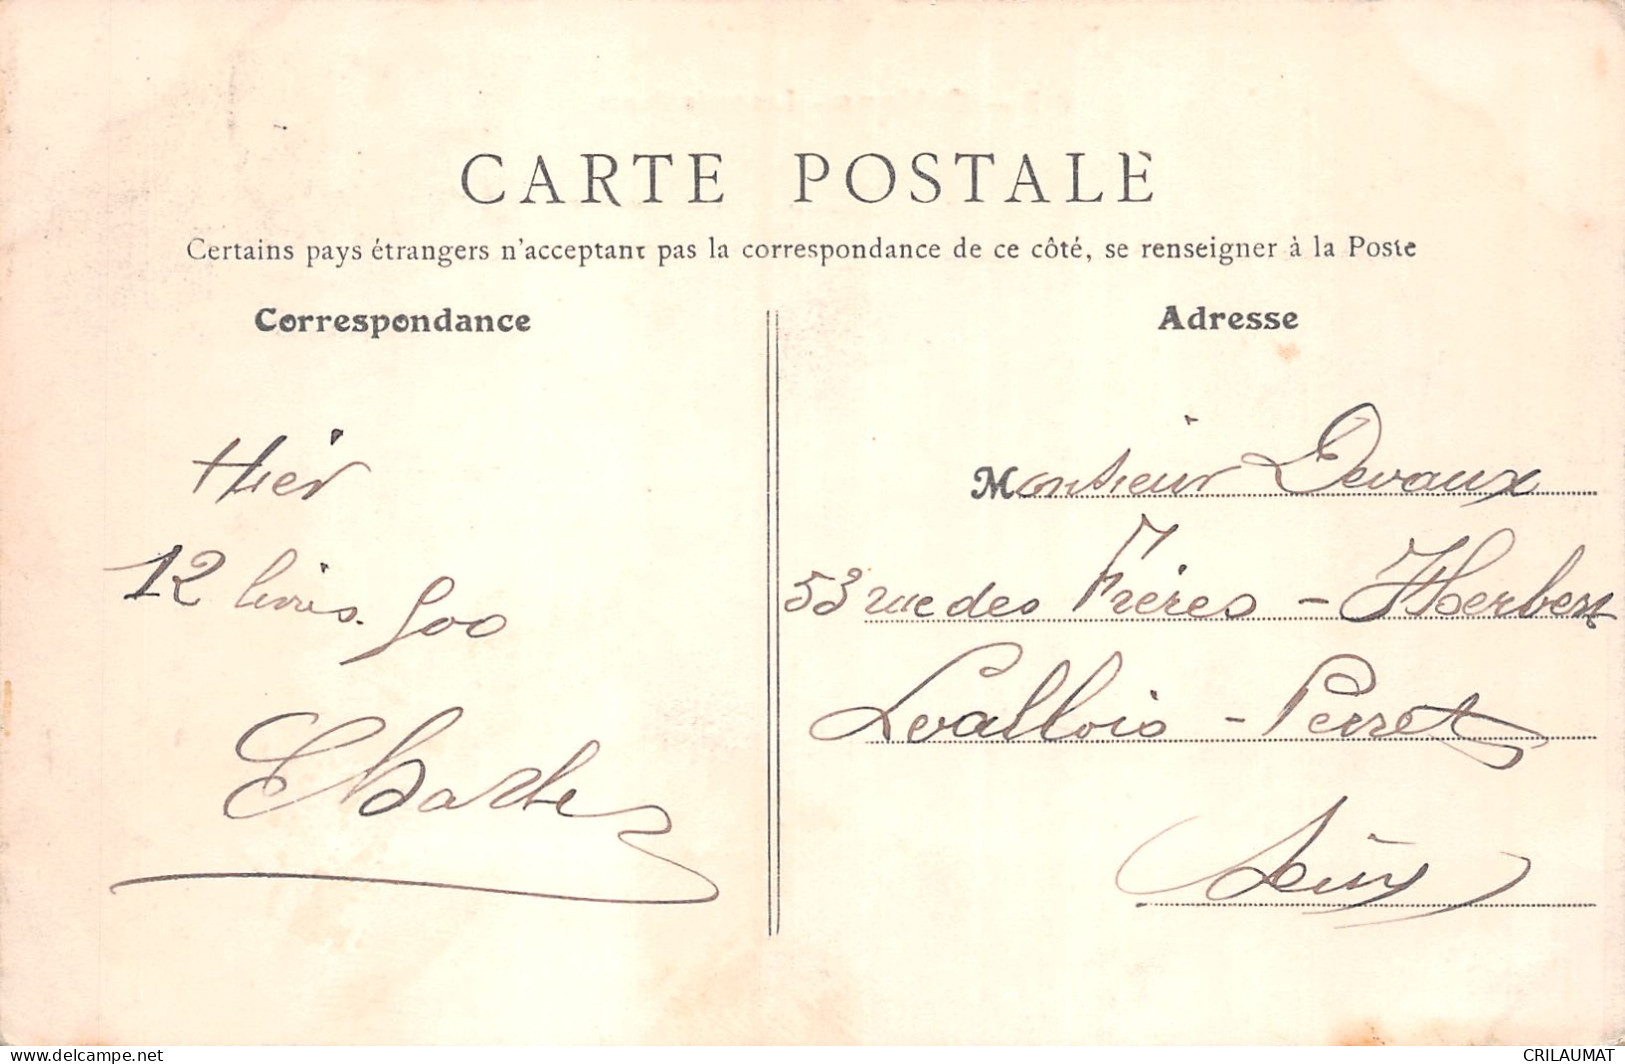 CARTE POSTALE
Certains pays étrangers n'acceptant pas la correspondance de ce côté, se renseigner à la Poste
Correspondance
Hier
12 livres 500
Charles
Adresse
Monsieur Devaux
53 rue des Frères - Herbert
Levallois - Perret
Seine
www.delcampe.net
CRILAUMAT